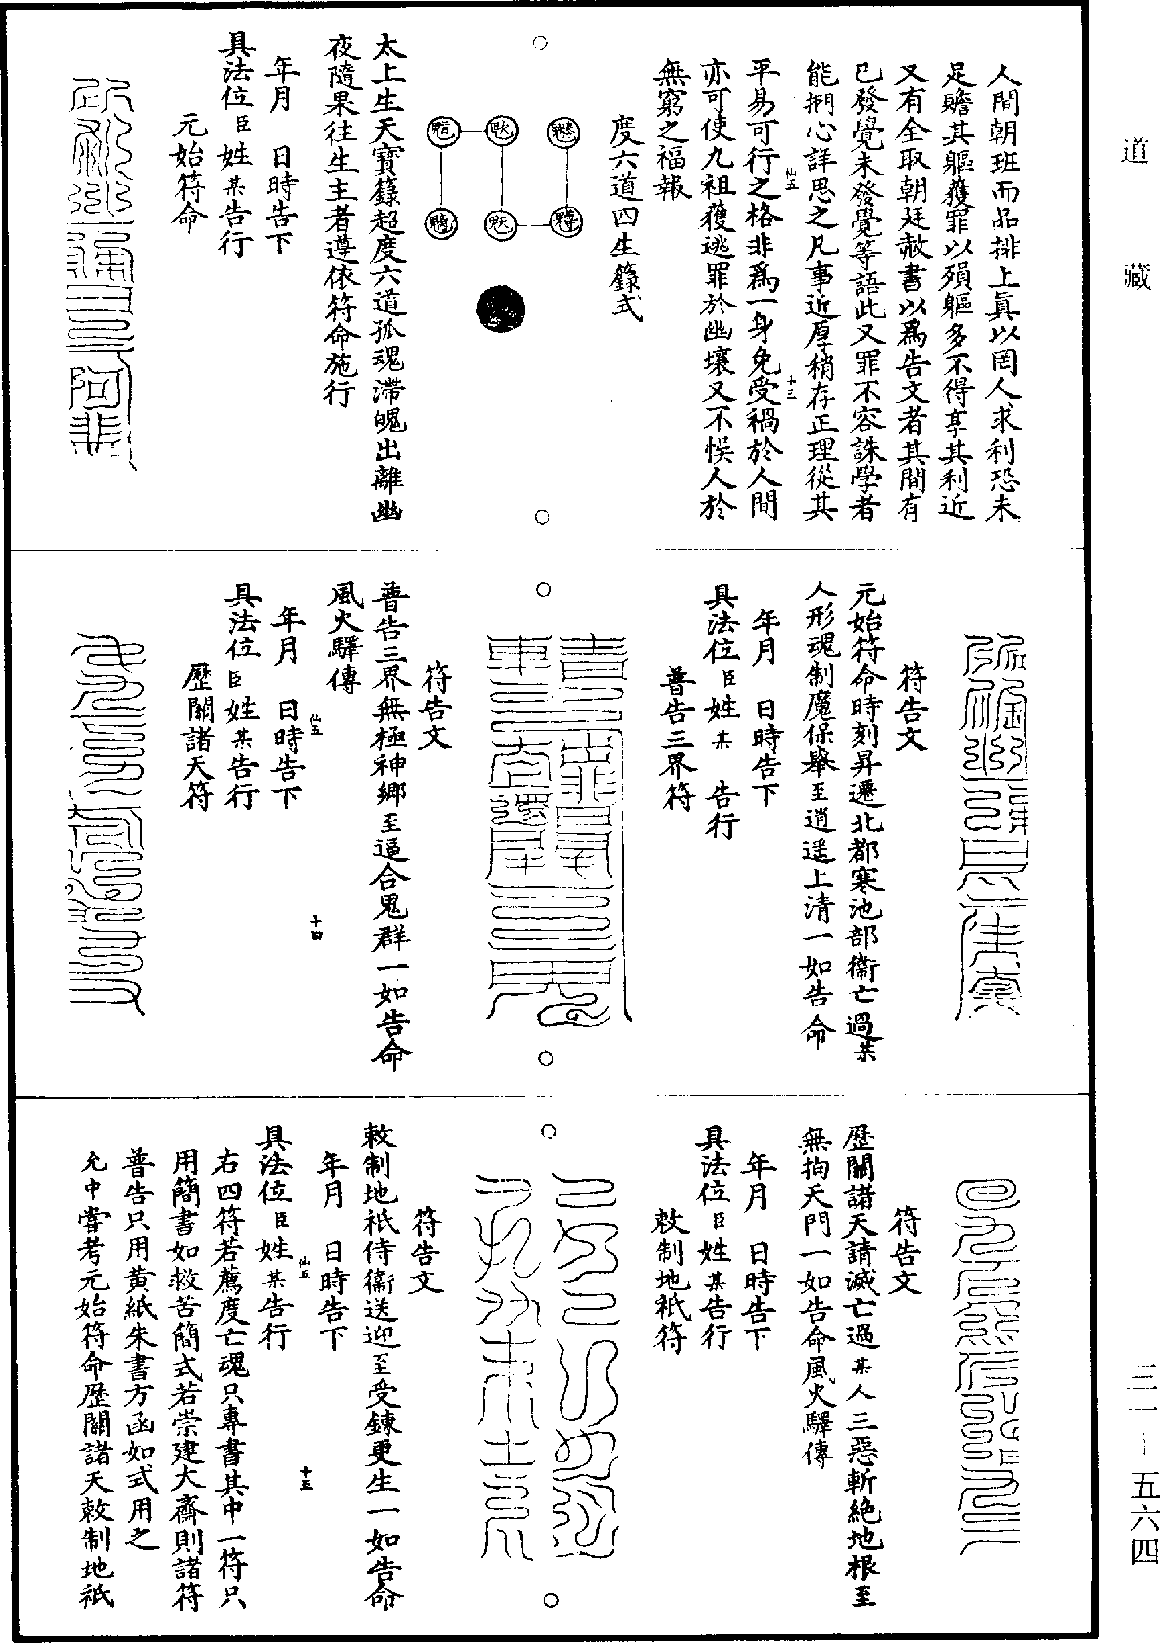 道藏
三一—五六四
人間朝班而品排上真以罔人求利恐未
足贍其軀獲罪以殞軀多不得享其利近
又有全取朝廷赦書以為告文者其間有
已發覺未發覺等語此又罪不容誅學者
能捫心詳思之凡事近厚稍存正理從其
仙五 十三
平易可行之格非為一身免受禍於人間
亦可使九祖獲逃罪於幽壤又不悞人於
無窮之福報
度六道四生籙式
太上生天寶籙超度六道孤魂滯魄出離幽
夜隨果往生主者遵依符命施行
年月　日時告下
具法位臣姓某告行
元始符命
符告文
元始符命時刻昇遷北都寒池部衛亡過某
人形魂制魔保舉至逍遥上清一如告命
年月　日時告下
具法位臣姓某　告行
普告三界符
符告文
普告三界無極神鄉至逼合鬼群一如告命
風火驛傳
仙五 十四
年月　日時告下
具法位臣姓某告行
歷關諸天符
符告文
歷關諸天請滅亡過某人三惡斬絶地根至
無拘天門一如告命風火驛傳
年月　日時告下
具法位臣姓某告行
敕制地祇符
符告文
敕制地祇侍衛送迎至受鍊更生一如告命
年月　日時告下
仙五 十五
具法位臣姓某告行
右四符若薦度亡魂只專書其中一符只
用簡書如救苦簡式若崇建大齋則諸符
普告只用黄紙朱書方函如式用之
允中嘗考元始符命歷關諸天敕制地祇